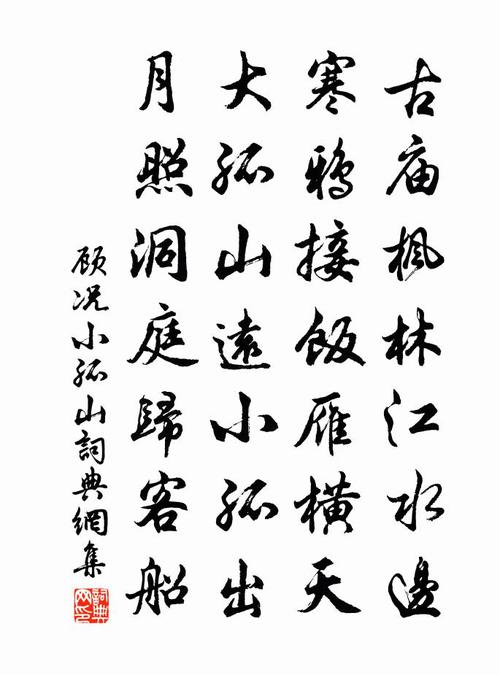 古庙枫林江水邊
寒鴉接飯雁橫天
大孤山遠小孤出
月照洞庭歸客船
顾况小孤山詞典網集
詞典网印